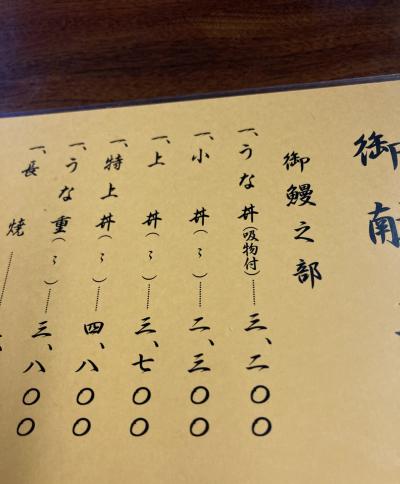 御
御鰻之部
一、うな丼(吸物付)……三、二〇〇
一、小丼(〻)……二、三〇〇
一、上丼(〻)……三、七〇〇
一、特上丼(〻)……四、八〇〇
一、うな重(〻)……三、八〇〇
一、長焼……